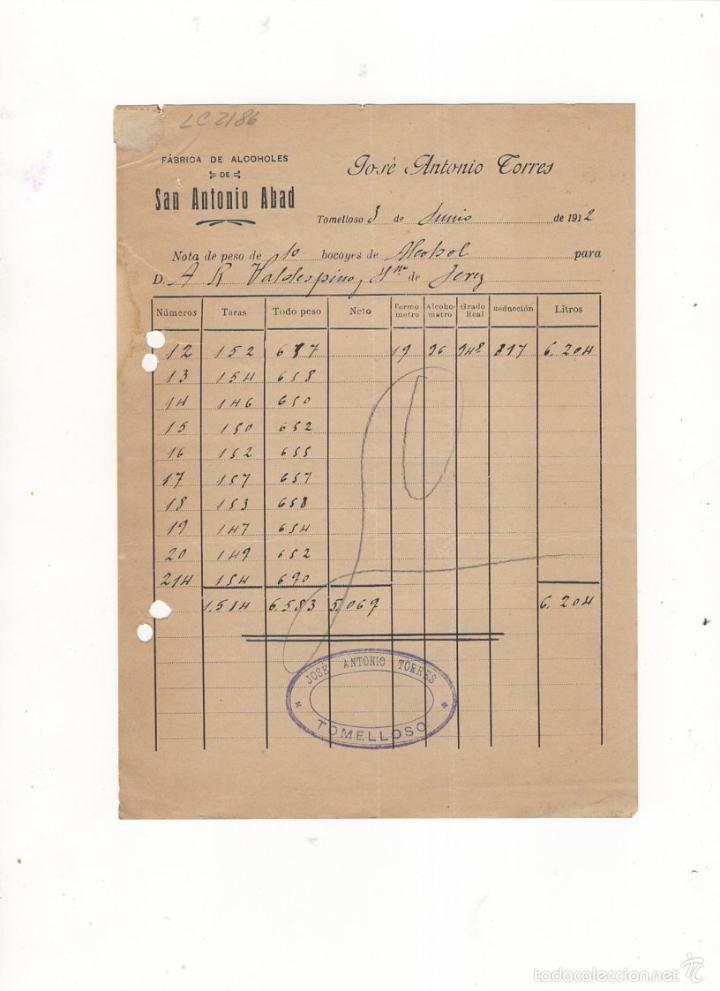 LC 2186
FÁBRICA DE ALCOHOLES
DE
San Antonio Abad
José Antonio Torres
Tomelloso 3 de Junio de 1912
Nota de peso de 10 bocoyes de Alcohol para
D. A R Valdespino y Hno de Jerez
Números Taras Todo peso Neto Termo metro Alcohó metro Grado Real Reducción Litros
12 152 657 19 96 948 817 6.204
13 154 658
14 146 650
15 150 652
16 152 655
17 157 657
18 153 658
19 147 654
20 149 652
214 154 690
1.514 6.583 5.069 6.204
JOSÉ ANTONIO TORRES
TOMELLOSO
todocoleccion.net